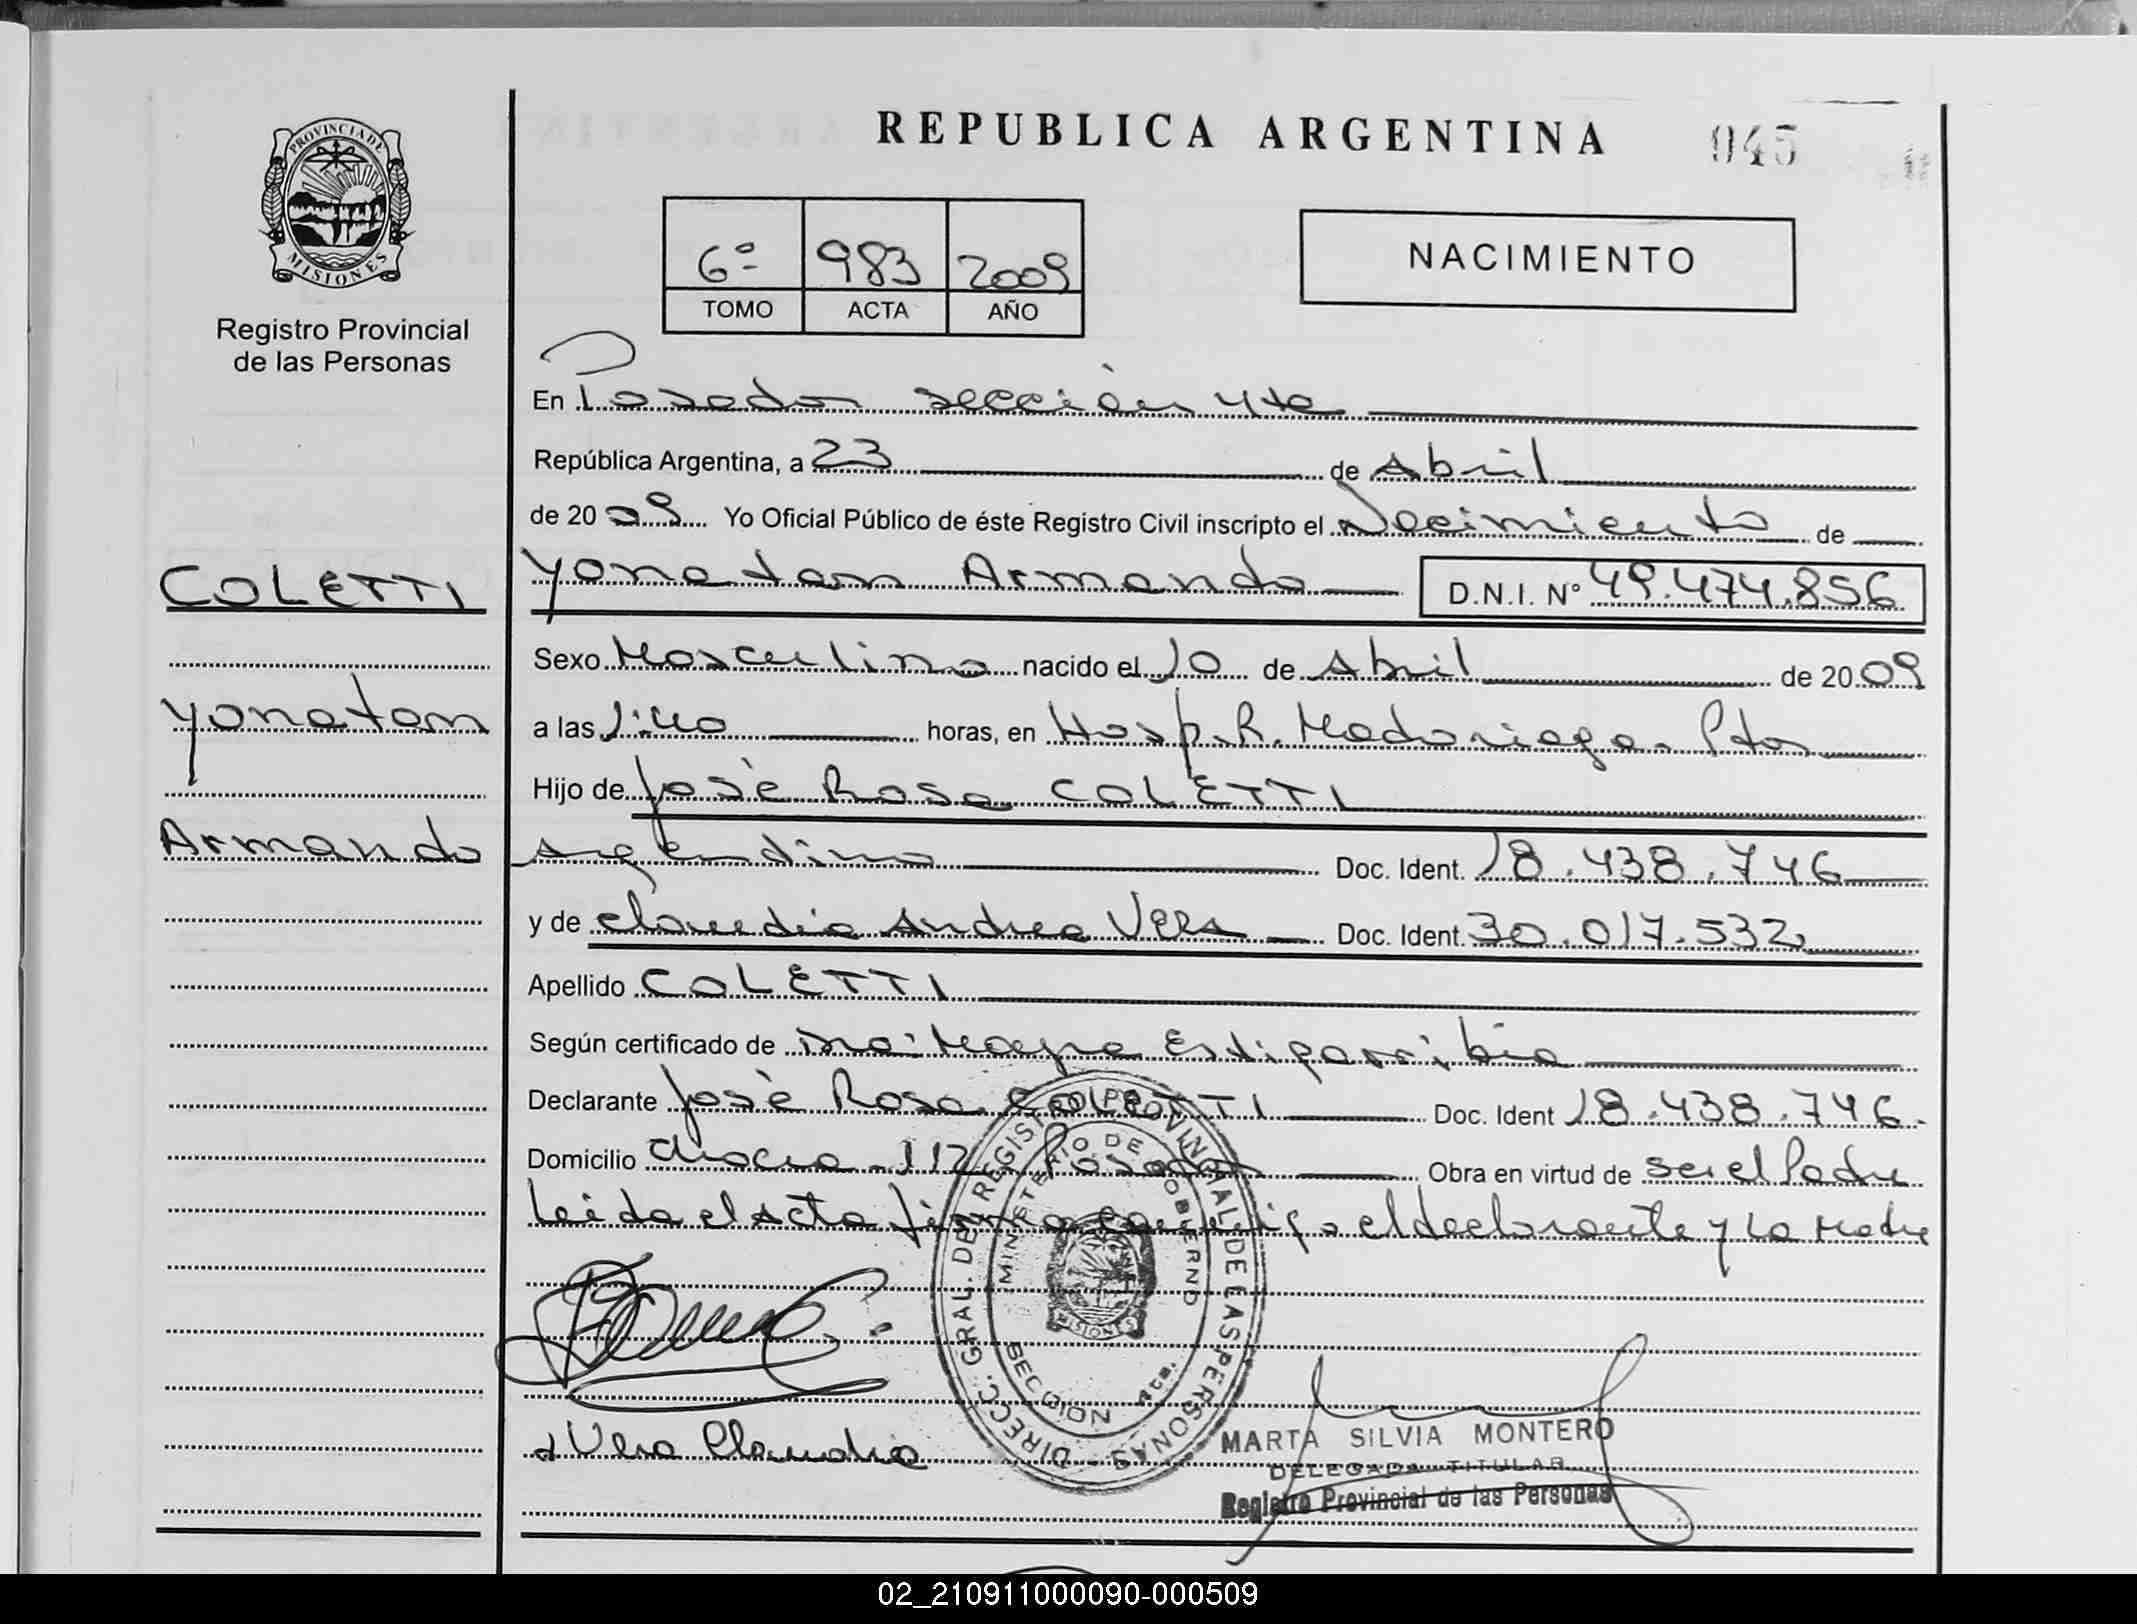 REPUBLICA ARGENTINA
045
PROVINCIA DE
MISIONES
Registro Provincial
de las Personas
6º 983 2009
TOMO ACTA AÑO
NACIMIENTO
En Posadas sección 4ta
República Argentina, a 23 de Abril
de 2009 Yo Oficial Público de éste Registro Civil inscripto el Nacimiento de
COLETTI
Yonatan Armando D.N.I. Nº 49.474.856
Sexo Masculino nacido el 10 de Abril de 2009
Yonatan
a las 1:40 horas, en Hosp. R. Madariaga. Pdas
Hijo de José Rosa COLETTI
Armando
Argentino Doc. Ident. 18.438.746
y de Claudia Andrea Vera Doc. Ident. 30.017.532
Apellido COLETTI
Según certificado de Estigarribia
Declarante José Rosa COLETTI Doc. Ident 18.438.746.
Domicilio Chacra 112 Posadas Obra en virtud de ser el Padre
Leida el acta firma conmigo el declarante y la Madre
DIRECC. GRAL. DEL REGISTRO PROVINCIAL DE LAS PERSONAS
MINISTERIO DE GOBIERNO
SECCION 4ta.
MISIONES
Vera Claudia
MARTA SILVIA MONTERO
DELEGADA TITULAR
Registro Provincial de las Personas
02_210911000090-000509